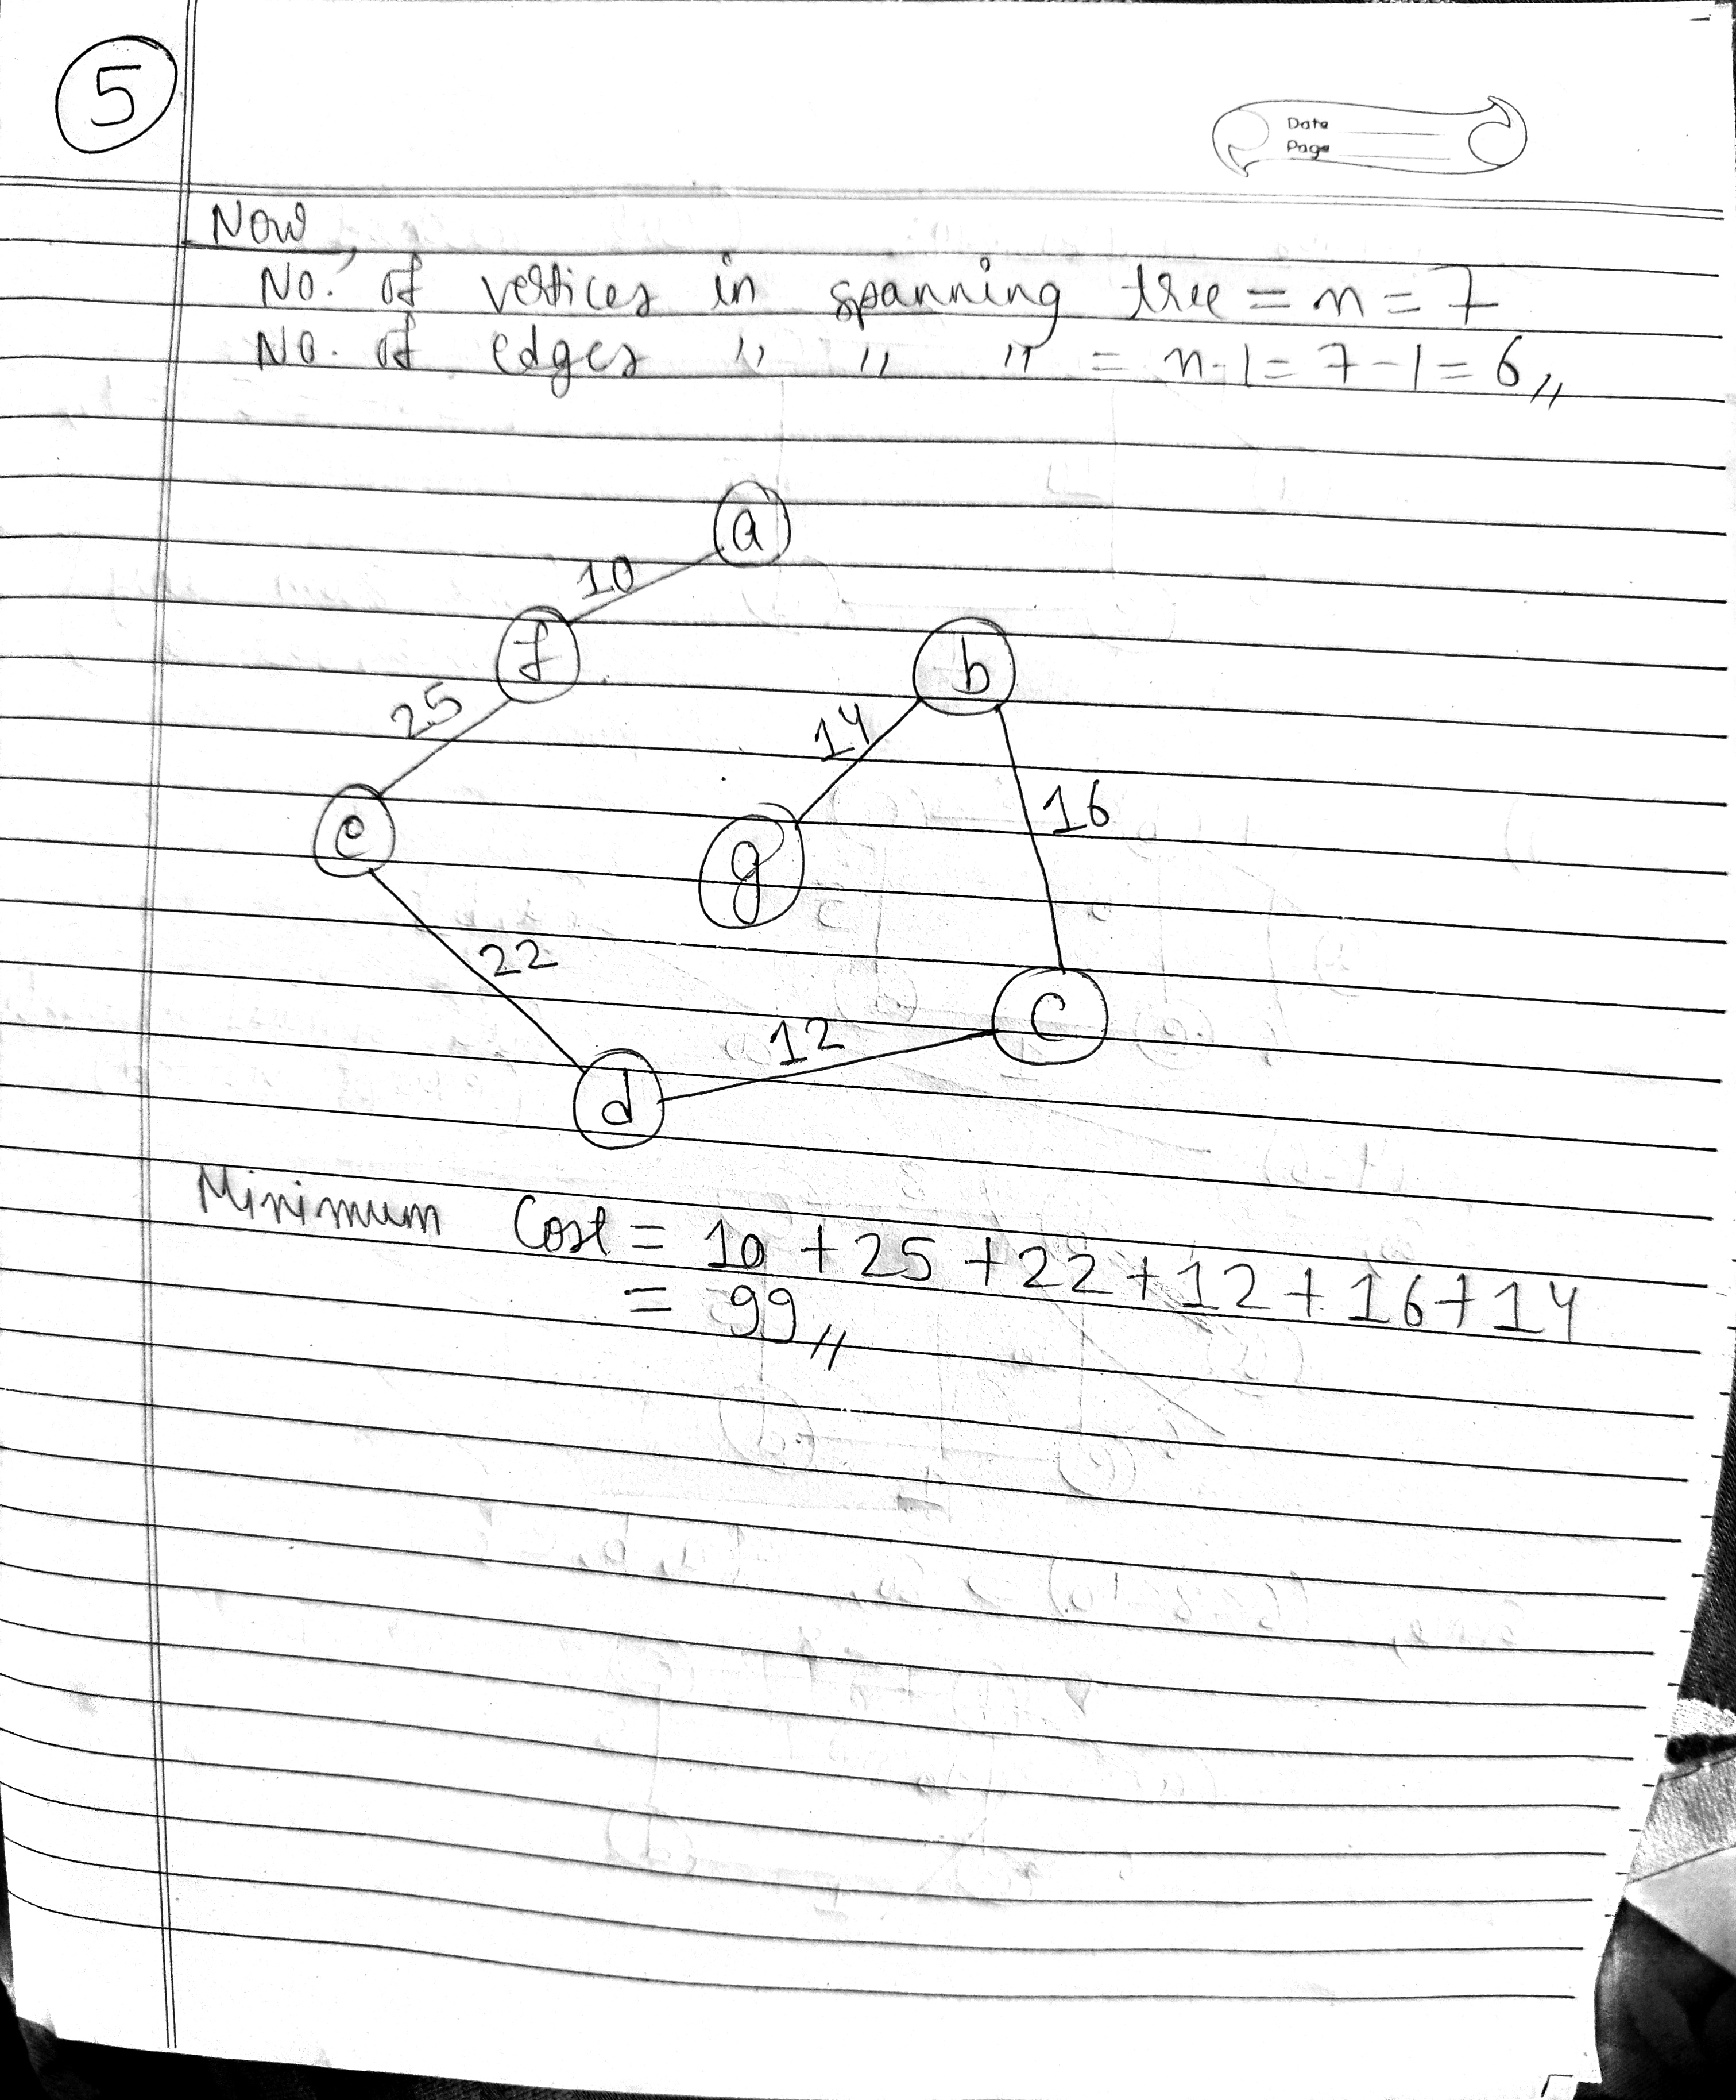 5
Date
Page
Now,
No. of vertices in spanning tree = n = 7
No. of edges " " " = n-1 = 7-1 = 6,,
a
10
f
b
25
14
16
e
g
22
c
12
d
Minimum Cost = 10 + 25 + 22 + 12 + 16 + 14
= 99,,